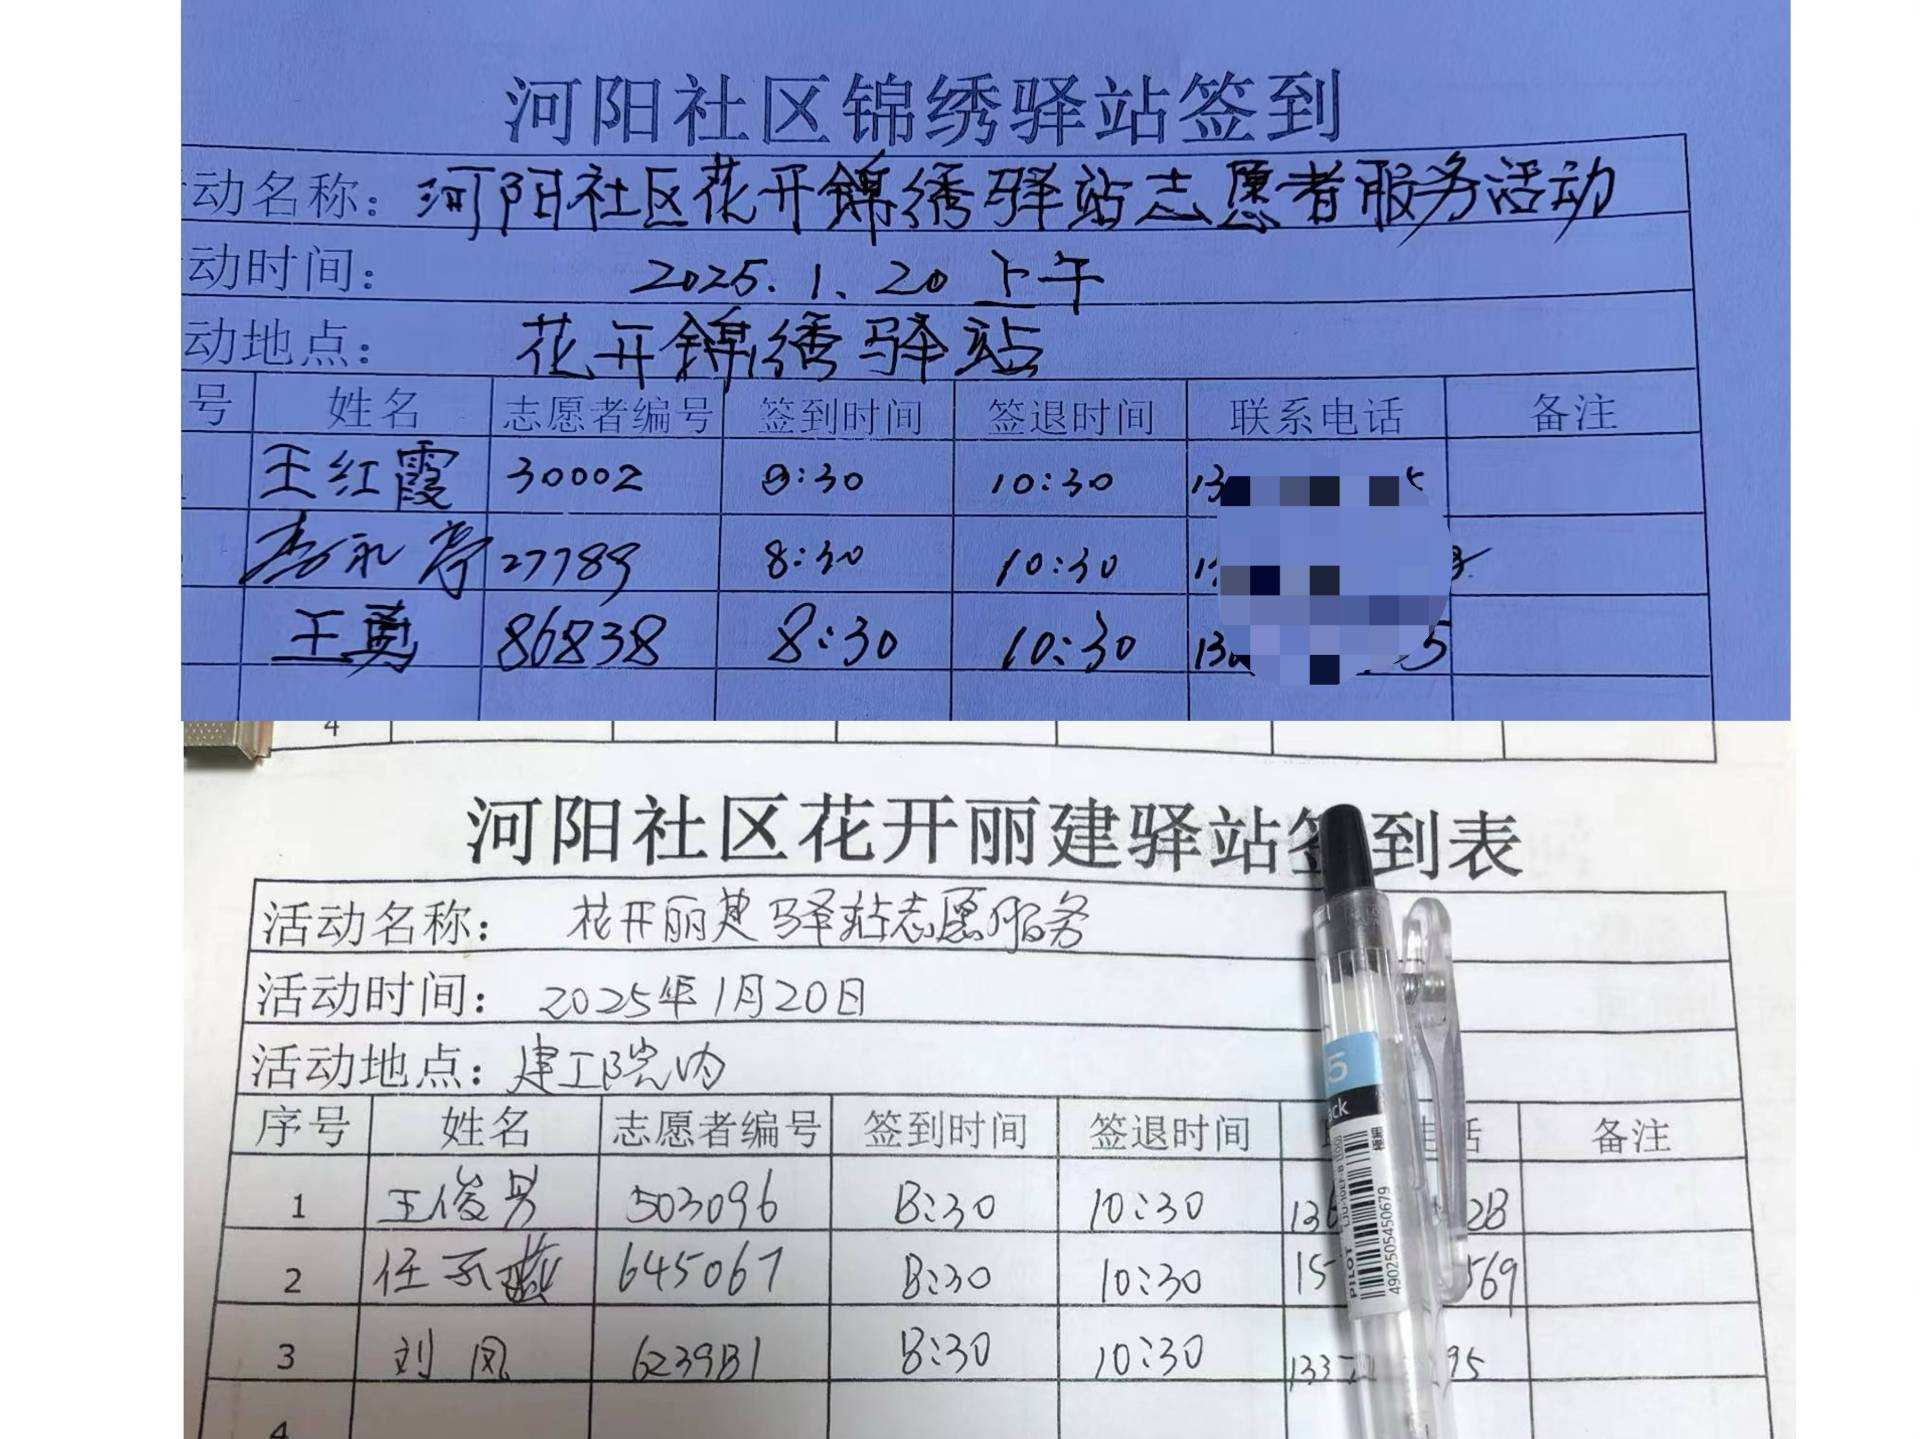 河阳社区锦绣驿站签到
动名称：河阳社区花开锦绣驿站志愿者服务活动
动时间： 2025.1.20 上午
动地点： 花开锦绣驿站
号 姓名 志愿者编号 签到时间 签退时间 联系电话 备注
王红霞 30002 8:30 10:30 13 5
李永亭 27789 8:30 10:30 1
王勇 86838 8:30 10:30 13 5
4
河阳社区花开丽建驿站签到表
活动名称： 花开丽建驿站志愿服务
活动时间： 2025年1月20日
活动地点：建工院内
序号 姓名 志愿者编号 签到时间 签退时间 话 备注
1 王俊男 503096 8:30 10:30 136 28
2 任 燕 645067 8:30 10:30 15 569
3 刘凤 623981 8:30 10:30 133 95
4
5
ack
PILOT
4902505450679